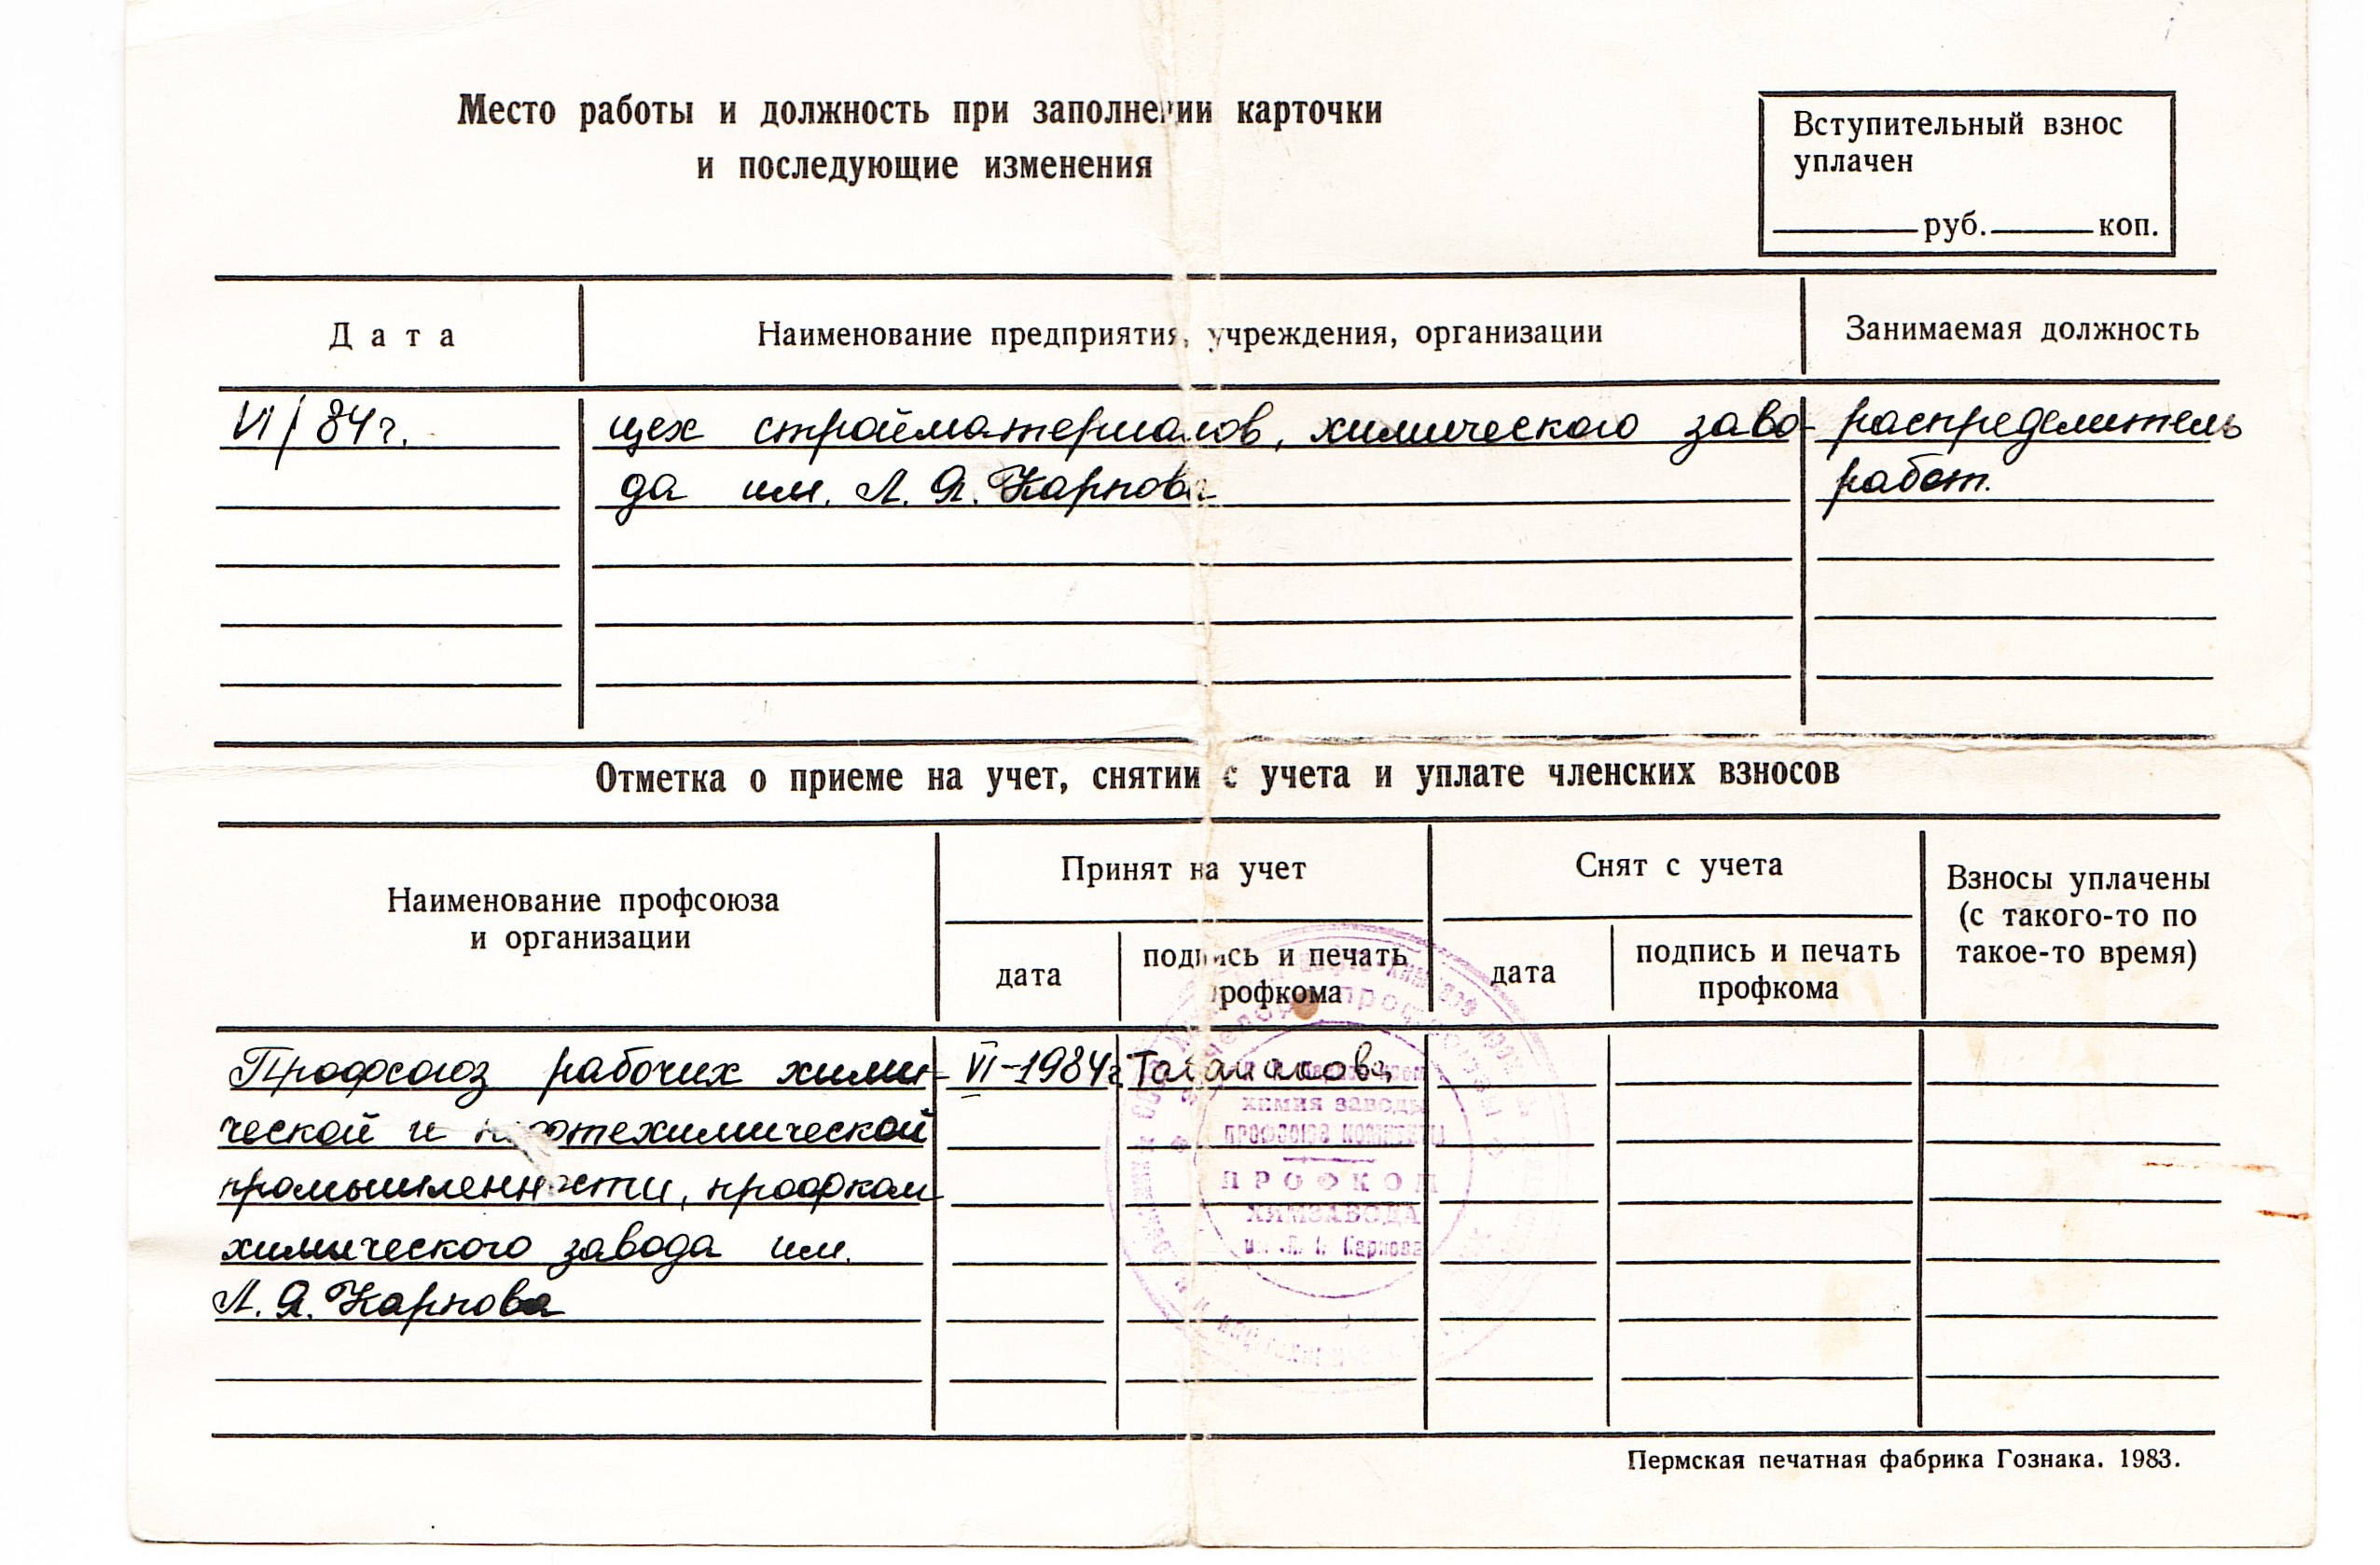 Место работы и должность при заполнении карточки
и последующие изменения
Вступительный взнос
уплачен
руб. коп.
Дата
Наименование предприятия, учреждения, организации
Занимаемая должность
VI/84г.
цех стройматериалов, химического заво-
распределитель
да им. Л. Я. Карпова
работ.
Отметка о приеме на учет, снятии с учета и уплате членских взносов
Наименование профсоюза
и организации
Принят на учет
дата
подпись и печать
профкома
Снят с учета
дата
подпись и печать
профкома
Взносы уплачены
(с такого-то по
такое-то время)
Профсоюз рабочих хими-
VI-1984г
ческой и
промышленности, профком
химического завода им.
Л. Я. Карпова
химия заводы
ПРОФКОМ
ХИМЗАВОДА
Карпова
Пермская печатная фабрика Гознака. 1983.